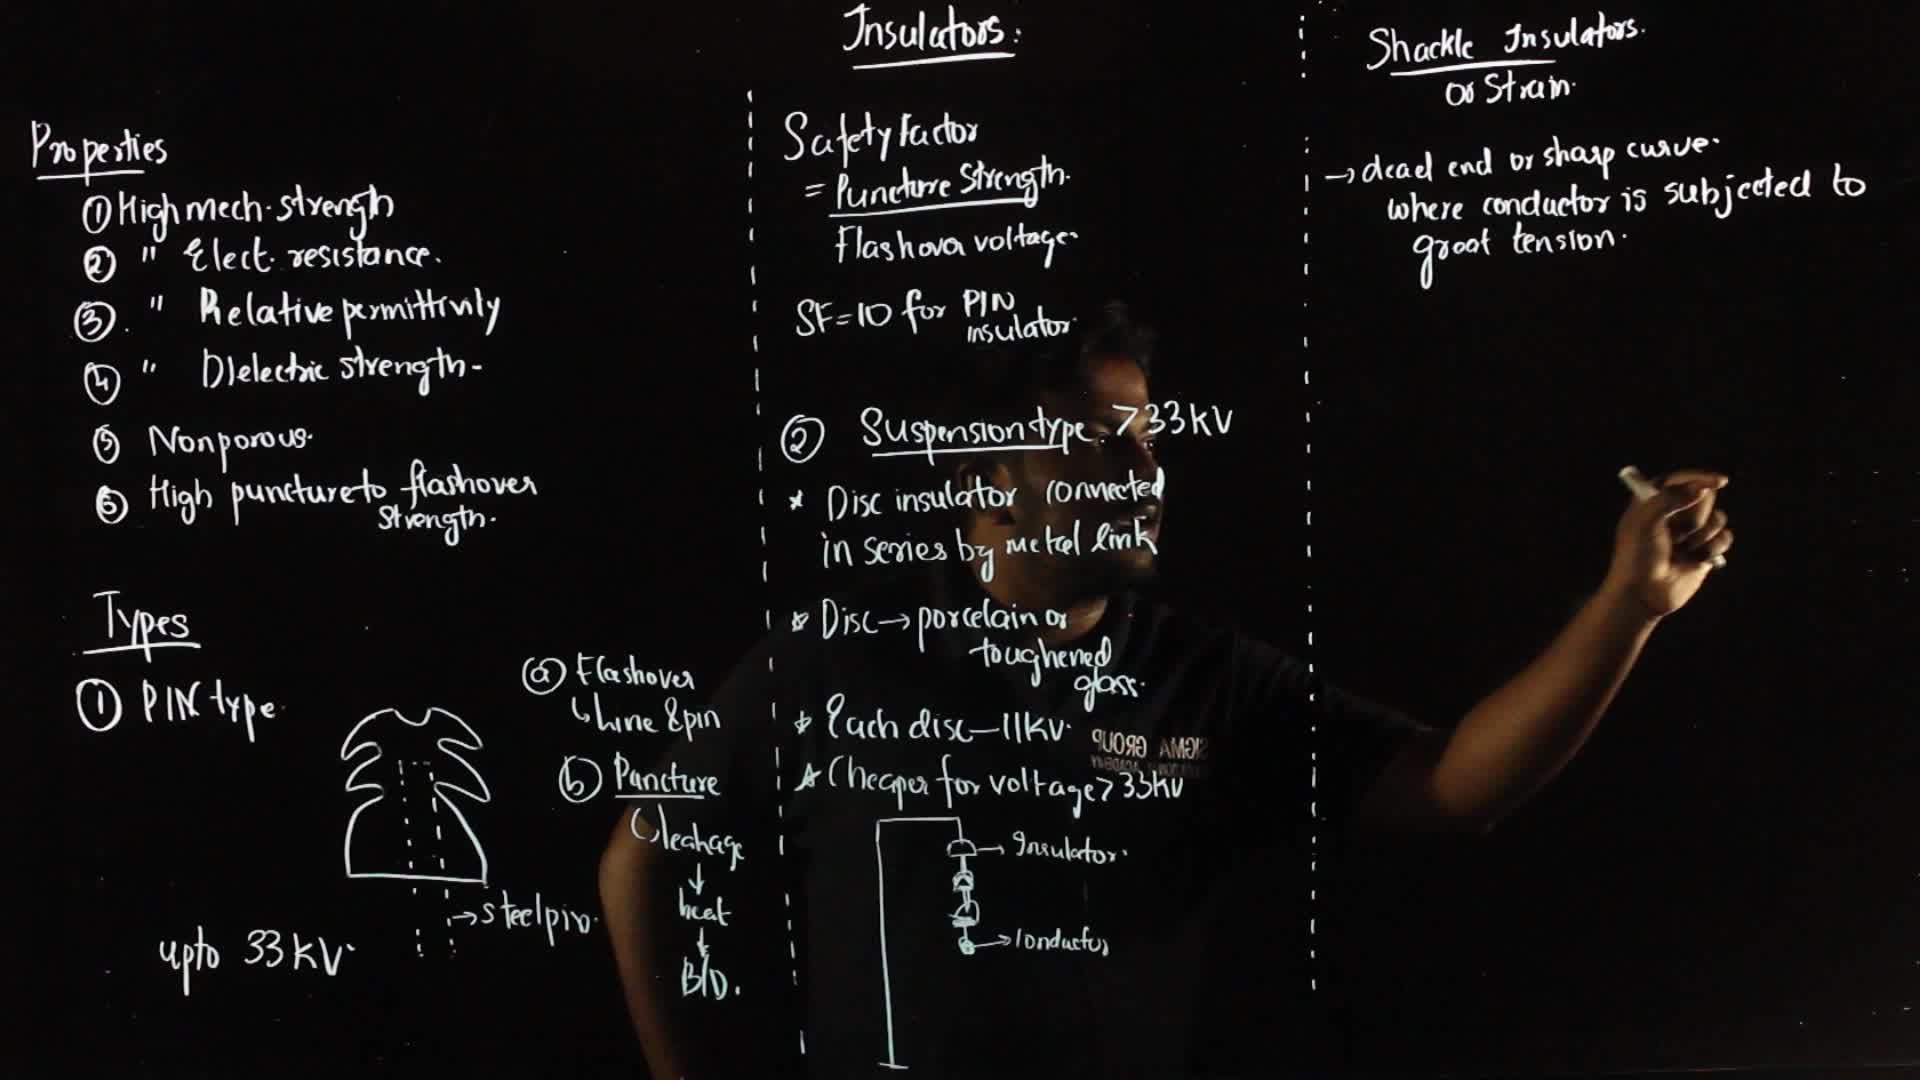 Insulators.
Properties
① High mech. strength
② " Elect. resistance.
③ . " Relative permittivily
④ " DIelectric strength-
⑤ Nonporous.
⑥ High puncture to flashover
strength.
Types
① PIN type.
upto 33 kV.
→ steel pin.
ⓐ Flashover
↳ Line & pin
ⓑ Puncture
leakage
↓
heat
↓
B/D.
Safety factor
= Puncture Strength.
Flashover voltage.
SF = 10 for PIN
insulator.
② Suspension type > 33 kV
* Disc insulator connected
in series by metal link
* Disc → porcelain or
toughened
glass.
* Each disc - 11kV.
* Cheaper for voltage > 33kV
→ Insulator.
→ Conductor
SIGMA GROUP
Shackle Insulators.
or Strain.
→ dead end or sharp curve.
where conductor is subjected to
great tension.